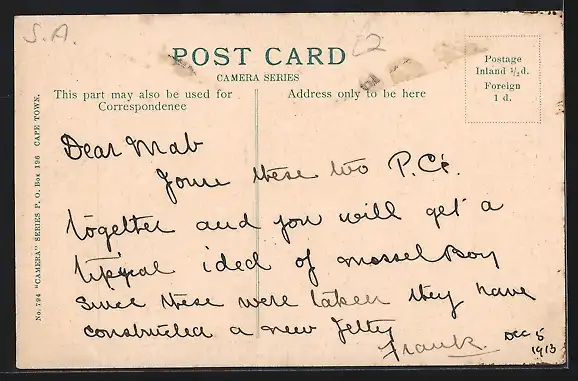 S.A.
£2
POST CARD
CAMERA SERIES
This part may also be used for
Correspondenee
Address only to be here
Postage
Inland ½d.
Foreign
1 d.
No. 794 "CAMERA" SERIES P. O. Box 196 CAPE TOWN.
Dear Mab
Joine these two P.Cs.
together and you will get a
tipycal idea of mossel Bay
Since these were taken they have
constructed a new Jetty
Frank.
Dec 5
1913